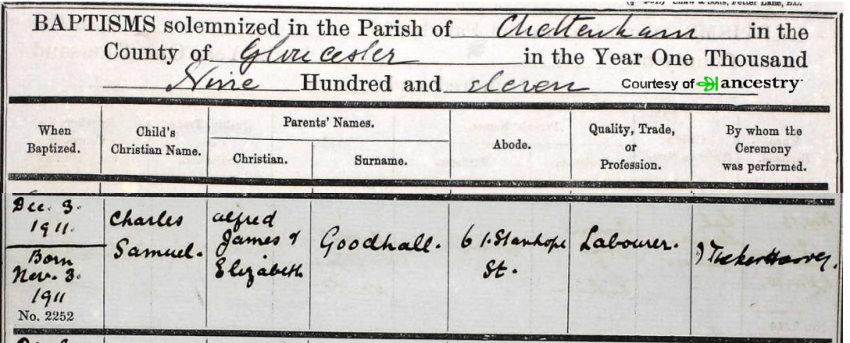 BAPTISMS solemnized in the Parish of Cheltenham in the
County of Gloucester in the Year One Thousand
Nine Hundred and eleven
Courtesy of ancestry
When Baptized.
Child's Christian Name.
Parents' Names.
Christian.
Surname.
Abode.
Quality, Trade, or Profession.
By whom the Ceremony was performed.
Dec. 3.
1911.
Born
Nov. 3.
1911
No. 2252
Charles
Samuel.
Alfred
James &
Elizabeth
Goodhall.
61. Stanhope
St.
Labourer.